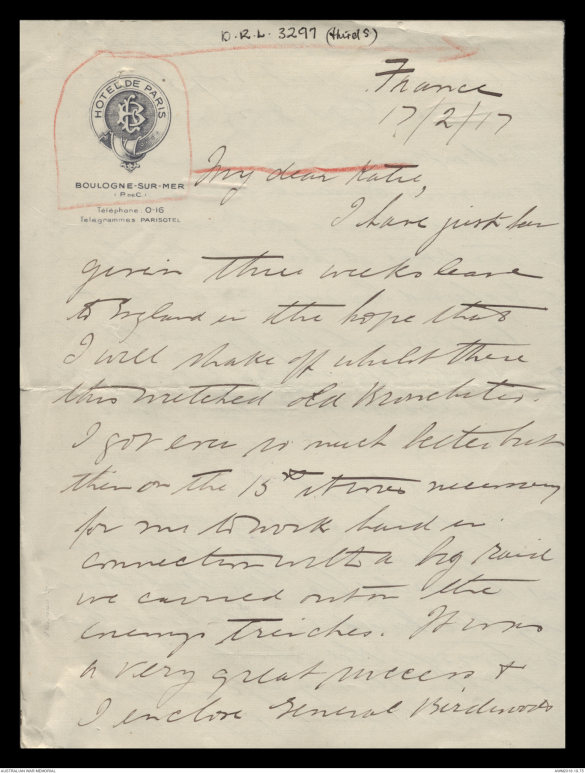 D.R.L. 3297 (third S)
HOTEL DE PARIS
BOULOGNE-SUR-MER
(P. DE C.)
Téléphone: 0-16
Télégrammes: PARISOTEL
France
17/2/17
My dear Katie,
I have just been
given three weeks leave
to England in the hope that
I will shake off whilst there
this wretched old Bronchitis.
I got ever so much better but
then on the 13th it was necessary
for me to work hard in
connection with a big raid
we carried out on the
enemys trenches. It was
a very great success &
I enclose General Birdwoods
AUSTRALIAN WAR MEMORIAL